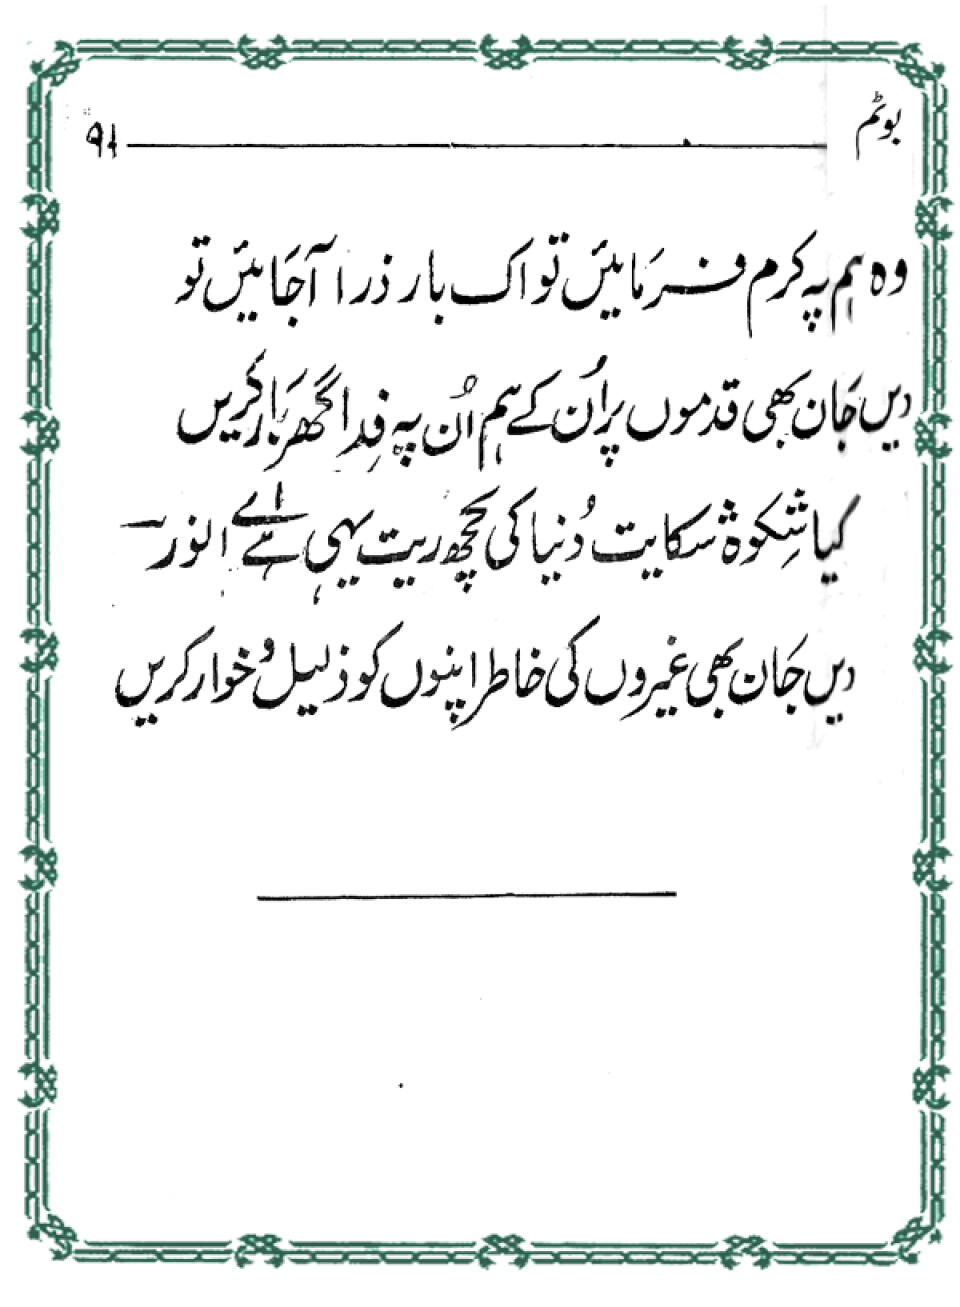 بوٹم ۹۱
وہ ہم پہ کرم فرمائیں تو اک بار ذرا آجائیں تو
دیں جان بھی قدموں پر اُن کے ہم اُن پہ فِدا گھر بَار کریں
کیا شِکوہ شکایت دُنیا کی کچھ ریت یہی ہے اے انور
دیں جان بھی غیروں کی خاطر اپنوں کو ذلیل و خوار کریں